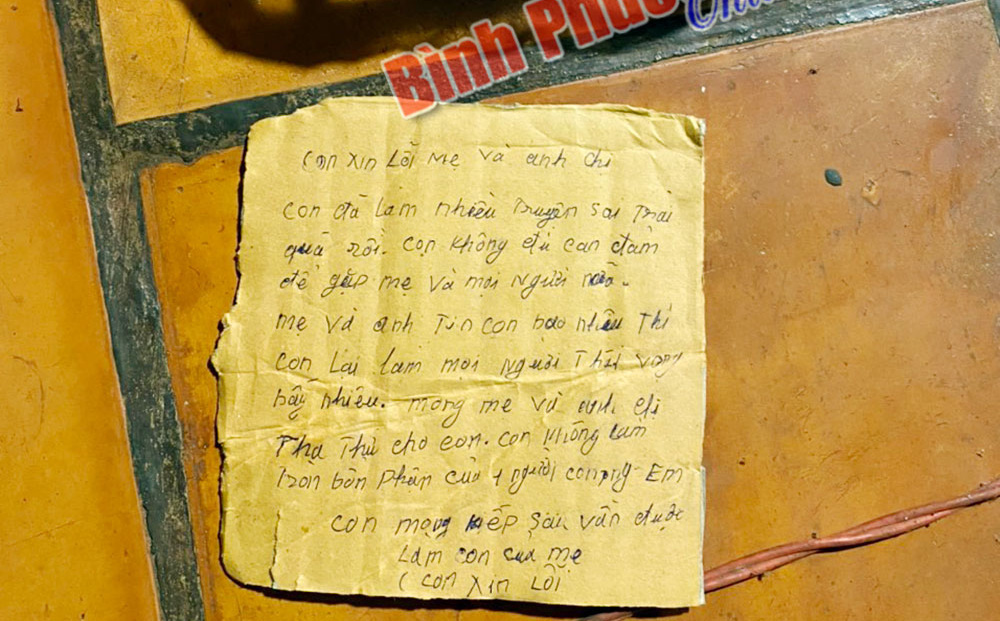 Bình Phước
Con xin Lỗi mẹ và anh chị
con đã Làm nhiều Truyện Sai Trái
quá rồi. con không đủ can đảm
để gặp mẹ và mọi người nữa.
mẹ và anh Tin con bao nhiêu Thì
con Lại làm mọi người Thất vọng
bấy nhiêu. mong mẹ và anh chị
Tha Thứ cho con. con không làm
tròn bổn phận của 1 người con Em
con mong kiếp sau vẫn được
Làm con của mẹ
( con xin Lỗi